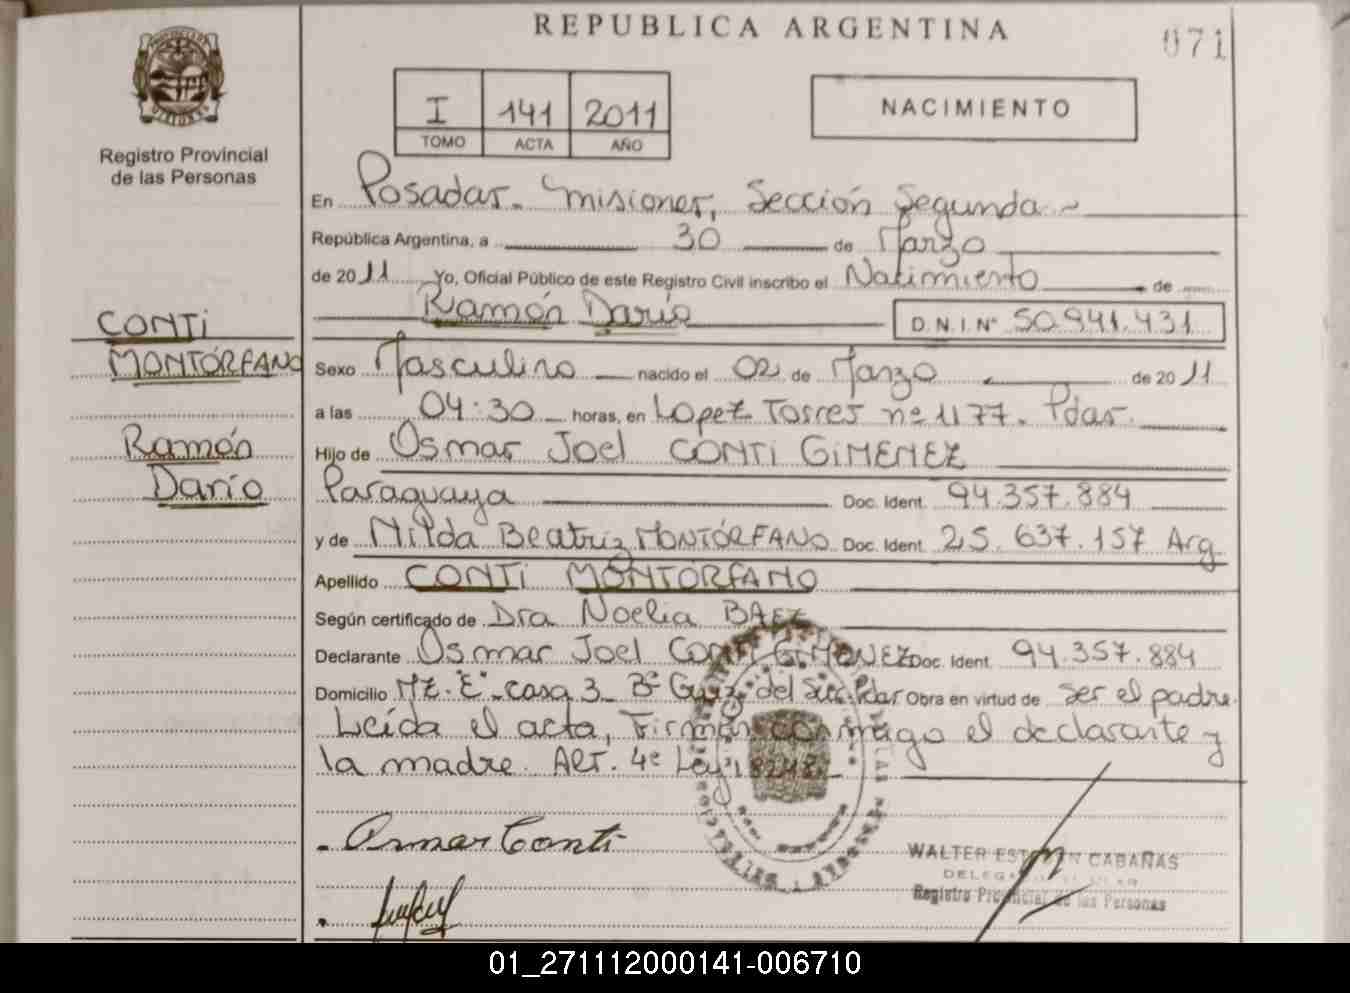 REPUBLICA ARGENTINA
071
PROVINCIA DE MISIONES
Registro Provincial
de las Personas
I 141 2011
TOMO ACTA AÑO
NACIMIENTO
En Posadas - Misiones, Sección Segunda
República Argentina, a 30 de Marzo
de 2011 Yo, Oficial Público de este Registro Civil inscribo el Nacimiento de
Ramón Darío D.N.I. Nº 50.941.431
CONTI
MONTÓRFANO
Ramón
Darío
Sexo Masculino nacido el 02 de Marzo de 2011
a las 04:30 horas, en Lopez Torres nº 1177. Pdas.
Hijo de Osmar Joel CONTI GIMENEZ
Paraguaya Doc. Ident. 94.357.884
y de Nilda Beatriz MONTÓRFANO Doc. Ident. 25.637.157 Arg
Apellido CONTI MONTÓRFANO
Según certificado de Dra Noelia BAEZ
Declarante Osmar Joel CONTI GIMENEZ Doc. Ident. 94.357.884
Domicilio Mz. "E" - casa 3 - Bº del Pdas Obra en virtud de ser el padre.
Leída el acta, Firman conmigo el declarante y
la madre. Art. 4º Ley 18248
Osmar Conti
WALTER ESTEBAN CABAÑAS
Registro Provincial de las Personas
01_271112000141-006710